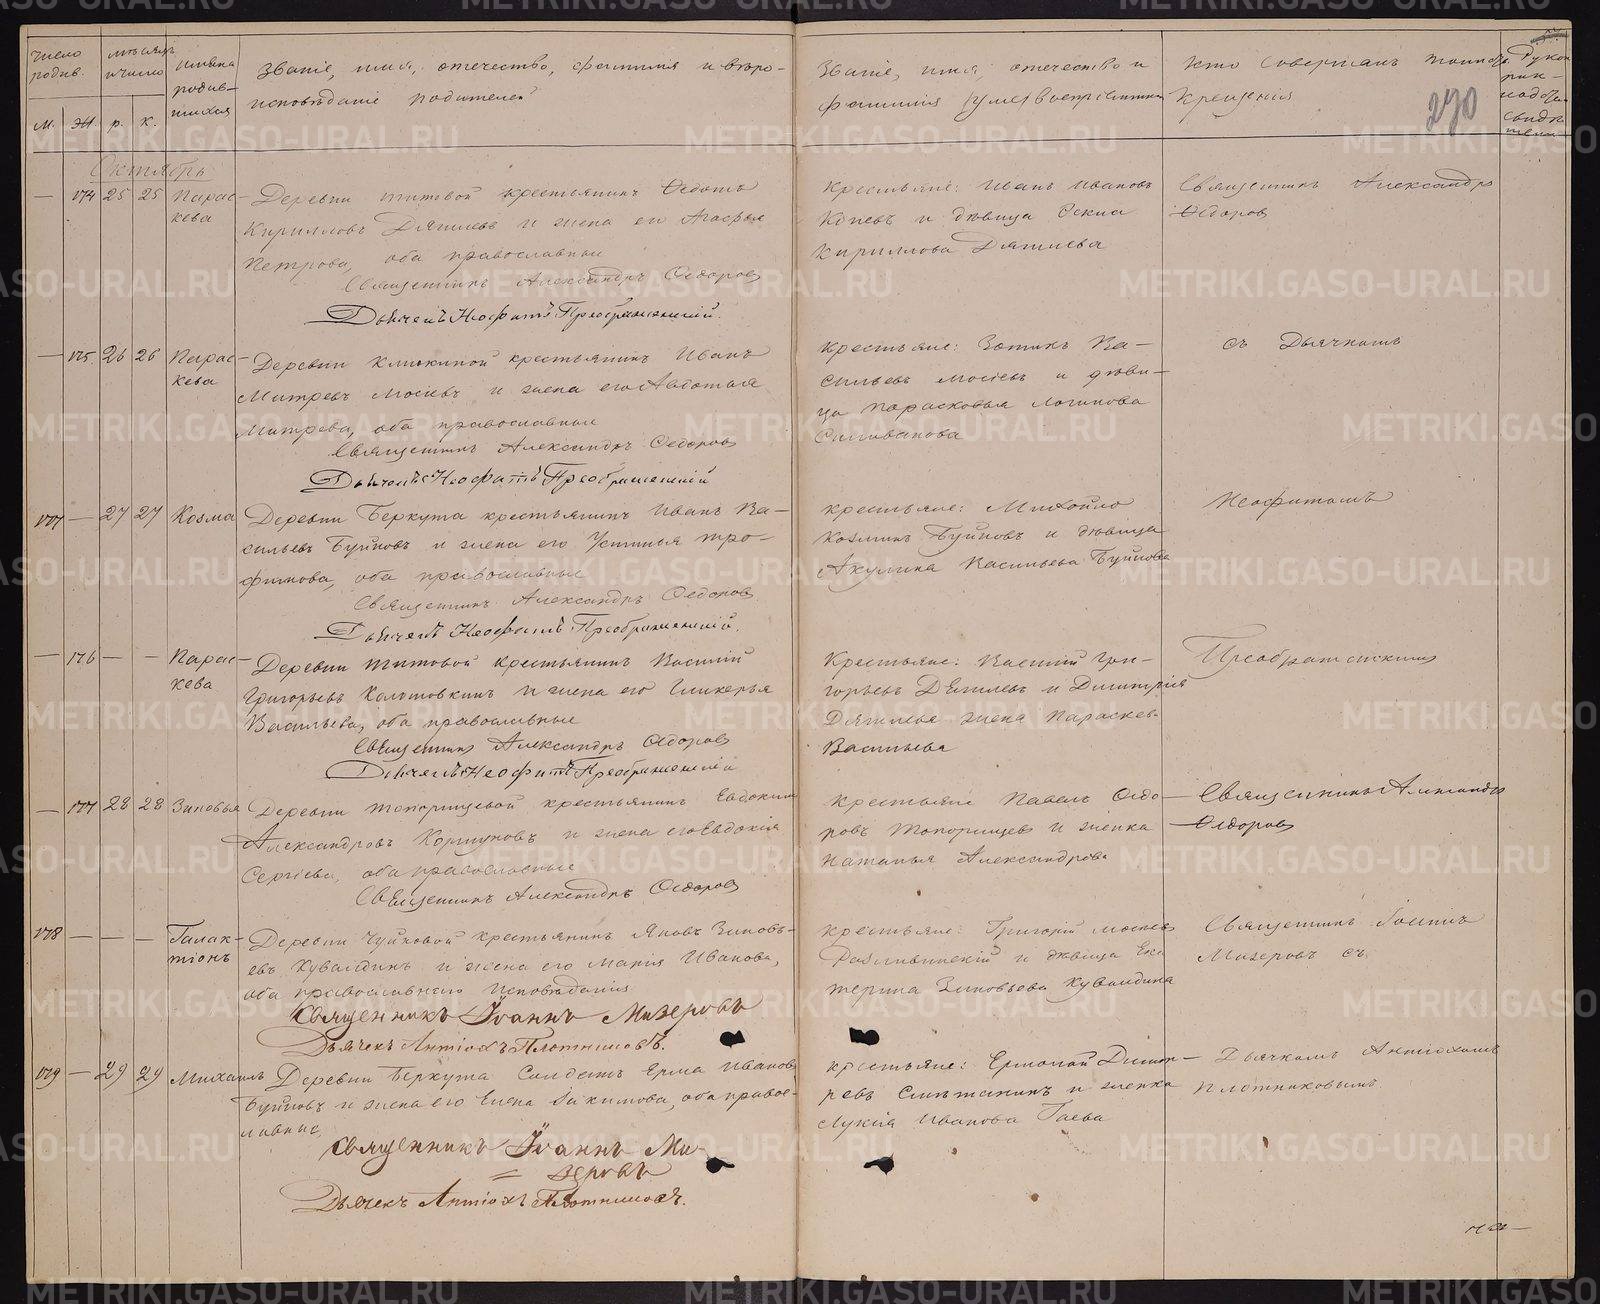 число родив.
мѣсяцъ и число
имена родив-
шихся
Званіе, имя, отечество, фамилія и вѣро-
исповѣданіе родителей
Званіе, имя, отечество и
фамилія
Кто совершалъ
крещенія
270
м. ж. р. к.
Октябрь
— 174 25 25 Парас-
кева
Деревни Титовой крестьянинъ Ѳедотъ
Кирилловъ Дягилевъ и жена его Агафья
Петрова, оба православные
Священникъ Александръ Ѳедоровъ
Дьячекъ Неофитъ Преображенскій.
крестьяне: Иванъ Ивановъ
и дѣвица
Кириллова Дягилева
Священникъ Александръ
Ѳедоровъ
— 175 26 26 Парас-
кева
Деревни крестьянинъ Иванъ
Митревъ Мосѣевъ и жена его Авдотья
Митрева, оба православные
Священникъ Александръ Ѳедоровъ
Дьячекъ Неофитъ Преображенскій
крестьяне: Зотикъ Ва-
сильевъ Мосѣевъ и дѣви-
ца Парасковья Логинова
Селиванова
съ Дьячкомъ
177 — 27 27 Козма
Деревни Беркута крестьянинъ Иванъ Ва-
сильевъ Буйновъ и жена его Устинья Тро-
фимова, оба православные
Священникъ Александръ Ѳедоровъ
Дьячекъ Неофитъ Преображенскій.
крестьяне: Михайло
Козминъ Буйновъ и дѣвица
Акулина Васильева Буйнова
Неофитомъ
— 176 — — Парас-
кева
Деревни Титовой крестьянинъ Василій
Григорьевъ и жена его Гликерья
Васильева, оба православные
Священникъ Александръ Ѳедоровъ
Дьячекъ Неофитъ Преображенскій
Крестьяне: Василій Гри-
горьевъ Дягилевъ и Димитрія
Дягилева жена Параскев.
Васильева
Преображенскимъ
— 177 28 28 Зиновья
Деревни Топорищевой крестьянинъ Евдокимъ
Александровъ Коршуновъ и жена его Евдокія
Сергіева, оба православные
Священникъ Александръ Ѳедоровъ
крестьяне Павелъ Ѳедо-
ровъ Топорищевъ и женка
Наталья Александрова
Священникъ Александръ
Ѳедоровъ
178 — — — Галак-
тіонъ
Деревни Чуйковой крестьянинъ Яковъ Зиновь-
евъ Кувалдинъ и жена его Марія Иванова,
оба православнаго исповѣданія
Священникъ Іоаннъ Мизеровъ
Дьячекъ Антіохъ Плотниковъ.
крестьяне: Григорій
и дѣвица Ека
терина Зиновьева Кувалдина
Священникъ Іоаннъ
Мизеровъ съ
179 — 29 29 Михаилъ
Деревни Беркута Солдатъ Ерма Ивановъ
Буйновъ и жена его Елена Іакимова, оба право-
славные,
Священникъ Іоаннъ Ми-
зеровъ
Дьячекъ Антіохъ Плотниковъ.
крестьяне: Ермолай Димит-
ревъ и женка
Лукія Иванова Гаева
Дьячкомъ Антіохомъ
Плотниковымъ
METRIKI.GASO-URAL.RU